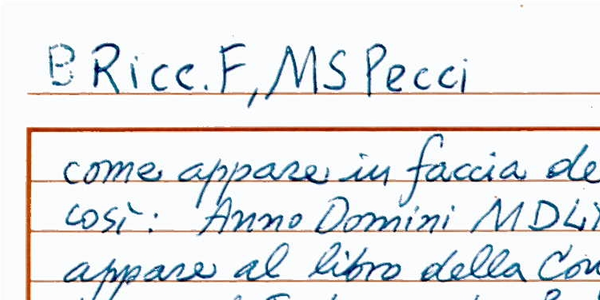 B Ricc. F, MS Pecci
come appare in faccia de
così: Anno Domini
appare al libro della Con